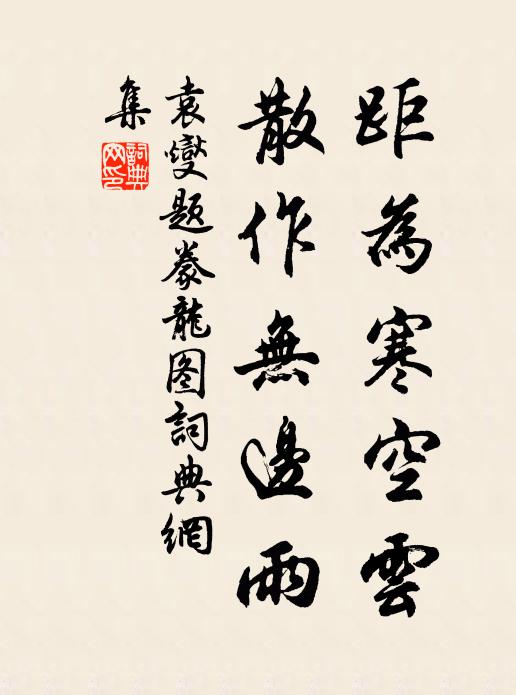 距為寒空雲
散作無邊雨
袁燮题豢龍图詞典網
集
詞典網印